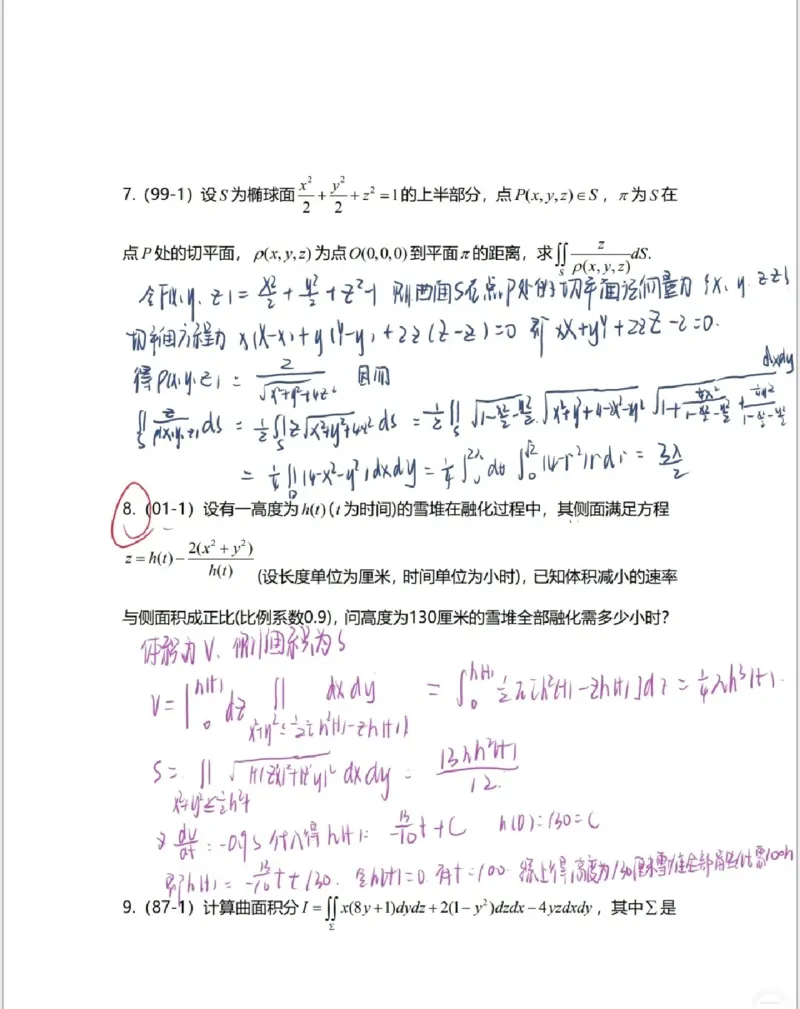 7.（99-1）设S为椭球面 x²/2 + y²/2 + z² = 1 的上半部分，点P(x,y,z)∈S，π为S在
点P处的切平面，ρ(x,y,z)为点O(0,0,0)到平面π的距离，求∬_S z/ρ(x,y,z) dS.
令F(x,y,z)=x²/2+y²/2+z²-1 则曲面S在点P处的切平面法向量为{x,y,2z}
切平面方程为 x(X-x)+y(Y-y)+2z(Z-z)=0 即 xX+yY+2zZ-2=0.
得ρ(x,y,z)=2/√(x²+y²+4z²) 因而
∬_S z/ρ(x,y,z) dS = 1/2∬_S z√(x²+y²+4z²) dS = 1/2∬_S √(1-x²/2-y²/2)·√(x²+y²+4-2x²-2y²) √(1+ (1/4x²)/(1-x²/2-y²/2) + (1/4y²)/(1-x²/2-y²/2)) dxdy
= 1/4∬_D (4-x²-y²)dxdy = 1/4∫₀^{2π}dθ∫₀^{√2}(4-r²)rdr = 3π/2
8.（01-1）设有一高度为h(t)(t为时间)的雪堆在融化过程中，其侧面满足方程
z=h(t)-2(x²+y²)/h(t) (设长度单位为厘米，时间单位为小时)，已知体积减小的速率
与侧面积成正比(比例系数0.9)，问高度为130厘米的雪堆全部融化需多少小时?
体积为V、侧面积为S
V=∫₀^{h(t)}dz ∬_{x²+y²≤1/2[h²(t)-zh(t)]} dxdy = ∫₀^{h(t)} 1/2π[h²(t)-zh(t)]dz = 1/4πh³(t).
S=∬_{x²+y²≤1/2h²(t)} √(1+(z'x)²+(z'y)²) dxdy = 13πh²(t)/12.
又 dV/dt=-0.9S 代入得h(t)= -13/10t+C h(0)=130=C
即h(t)=-13/10t+130. 令h(t)=0. 有t=100. 综上得,高度为130厘米雪堆全部消融需100h
9.（87-1）计算曲面积分I=∬_Σ x(8y+1)dydz+2(1-y²)dzdx-4yzdxdy，其中Σ是